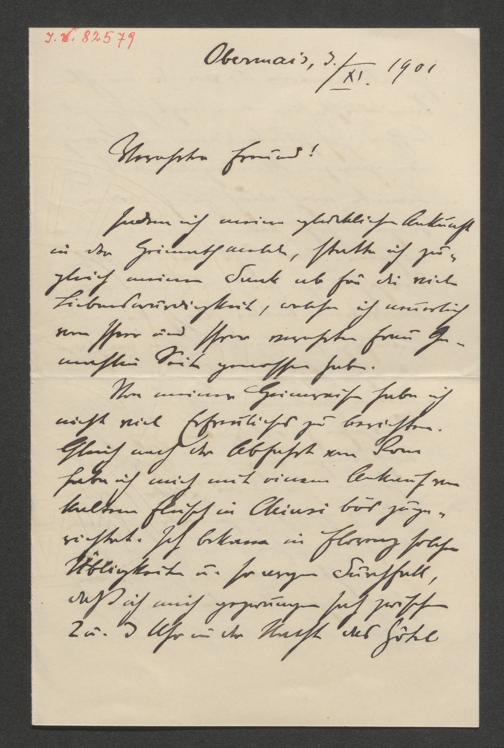 I.N. 82579
Obermais, 3./XI. 1901
Verehrter Freund!
Indem ich meine glückliche Ankunft
in der Heimath melde, statte ich zu-
gleich meinen Dank ab für die viele
Liebenswürdigkeit, welche ich neuerlich
von Ihrer und Ihrer verehrten Frau Ge-
mahlin Seite genossen habe.
Von meiner Heimreise habe ich
nicht viel Erfreuliches zu berichten.
Gleich nach der Abfahrt von Rom
habe ich mich mit einem Ankauf von
kaltem Fleisch in Chiusi bös zuge-
richtet. Ich bekam in Florenz solche
Übligkeiten u. so argen Durchfall,
daß ich mich gezwungen sah zwischen
2 u. 3 Uhr in der Nacht das Hôtel